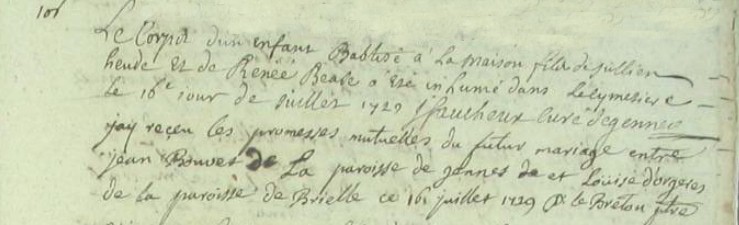 106
Le Corps d'un enfant Baptisé à La maison fils de jullien
heude Et de Renée Beale a été inhumé dans Le cymetiere
Le 16e jour de juillet 1729 faucheux Curé de gennes
jay reçeu les promesses mutuelles du futur mariage entre
jean Bouvet de La paroisse de gennes de et Louise dorgeres
de la paroisse de Brielle ce 16 juillet 1729 le Breton ptre